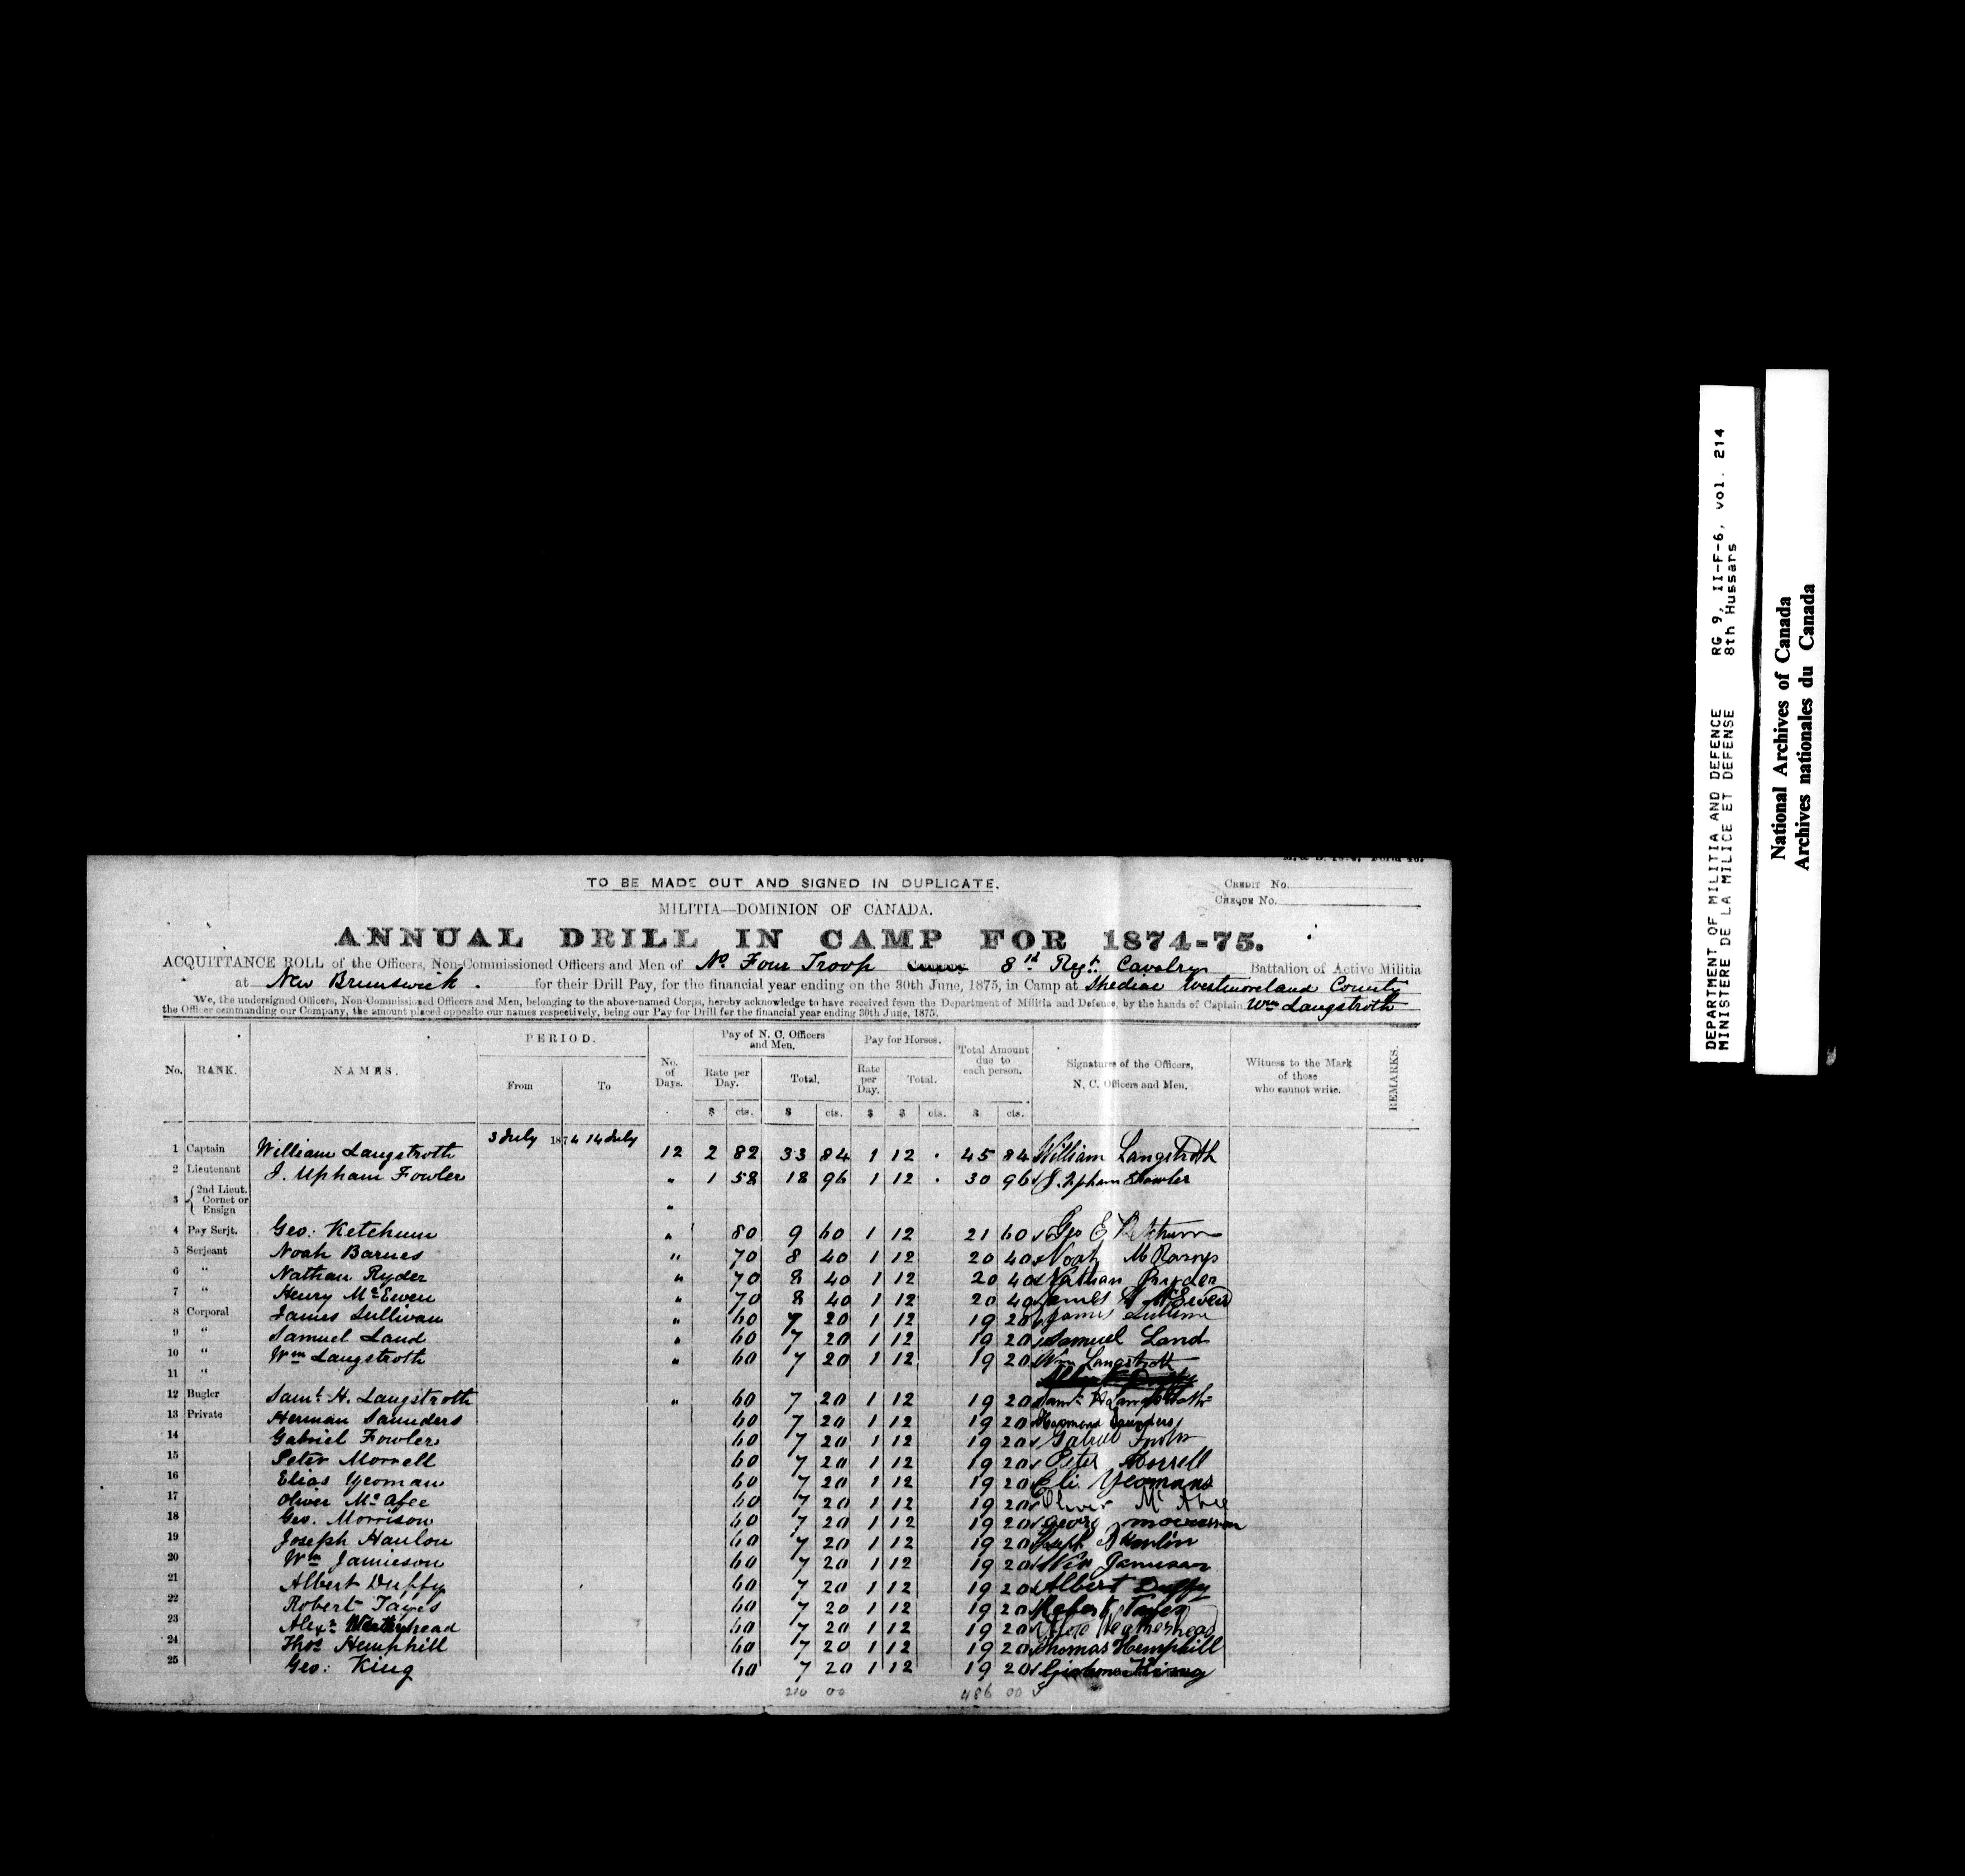 M. & D. 1874. Form 46.
TO BE MADE OUT AND SIGNED IN DUPLICATE.
CREDIT No.
CHEQUE No.
MILITIA—DOMINION OF CANADA.
ANNUAL DRILL IN CAMP FOR 1874-75.
ACQUITTANCE ROLL of the Officers, Non-Commissioned Officers and Men of No Four Troop 8th Regt. Cavalry Battalion of Active Militia
at New Brunswick. for their Drill Pay, for the financial year ending on the 30th June, 1875, in Camp at Shediac Westmoreland County
We, the undersigned Officers, Non-Commissioned Officers and Men, belonging to the above-named Corps, hereby acknowledge to have received from the Department of Militia and Defence, by the hands of Captain Wm Langstroth
the Officer commanding our Company, the amount placed opposite our names respectively, being our Pay for Drill for the financial year ending 30th June, 1875.
No. RANK. NAMES. PERIOD. From To No. of Days. Pay of N. C. Officers and Men. Rate per Day. Total. Pay for Horses. Rate per Day. Total. Total Amount due to each person. Signatures of the Officers, N. C. Officers and Men. Witness to the Mark of those who cannot write. REMARKS.
$ cts. $ cts. $ $ cts. $ cts.
3 July 1874 14 July
1 Captain William Langstroth 12 2 82 33 84 1 12 45 84 William Langstroth
2 Lieutenant J. Upham Fowler " 1 58 18 96 1 12 30 96 J. Upham Fowler
3 {2nd Lieut. Cornet or Ensign "
4 Pay Serjt. Geo: Ketchum " 80 9 60 1 12 21 60 Geo E Ketchum
5 Serjeant Noah Barnes " 70 8 40 1 12 20 40 Noah M Barnes
6 " Nathan Ryder " 70 8 40 1 12 20 40 Nathan Ryder
7 " Henry McEwen " 70 8 40 1 12 20 40 McEwen
8 Corporal James Sullivan " 60 7 20 1 12 19 20 James
9 " Samuel Land " 60 7 20 1 12 19 20 Samuel Land
10 " Wm Langstroth " 60 7 20 1 12 19 20 Wm Langstroth
11 "
12 Bugler Saml. H. Langstroth " 60 7 20 1 12 19 20 Saml H Langstroth
13 Private Herman Saunders 60 7 20 1 12 19 20 Saunders
14 Gabriel Fowler 60 7 20 1 12 19 20 Gabriel Fowler
15 Peter Morrell 60 7 20 1 12 19 20 Peter Morrell
16 Elias Yeoman 60 7 20 1 12 19 20 Eli Yeomans
17 Oliver McAfee 60 7 20 1 12 19 20 Oliver McAfee
18 Geo. Morrison 60 7 20 1 12 19 20 George
19 Joseph Hanlon 60 7 20 1 12 19 20 Joseph
20 Wm Jamieson 60 7 20 1 12 19 20 Wm
21 Albert Duffy 60 7 20 1 12 19 20 Albert Duffy
22 Robert Tayes 60 7 20 1 12 19 20 Robert Tayes
23 Alexr Weatherhead 60 7 20 1 12 19 20 Weatherhead
24 Thos Hemphill 60 7 20 1 12 19 20 Thomas Hemphill
25 Geo: King 60 7 20 1 12 19 20 King
210 00 486 00
DEPARTMENT OF MILITIA AND DEFENCE RG 9, II-F-6, vol. 214
MINISTERE DE LA MILICE ET DEFENSE 8th Hussars
National Archives of Canada
Archives nationales du Canada